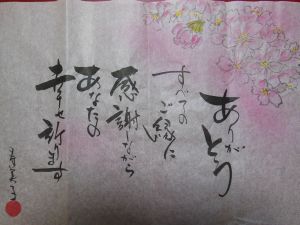 ありがとう
すべての
ご縁に
感謝しながら
あなたの
幸せ祈ります